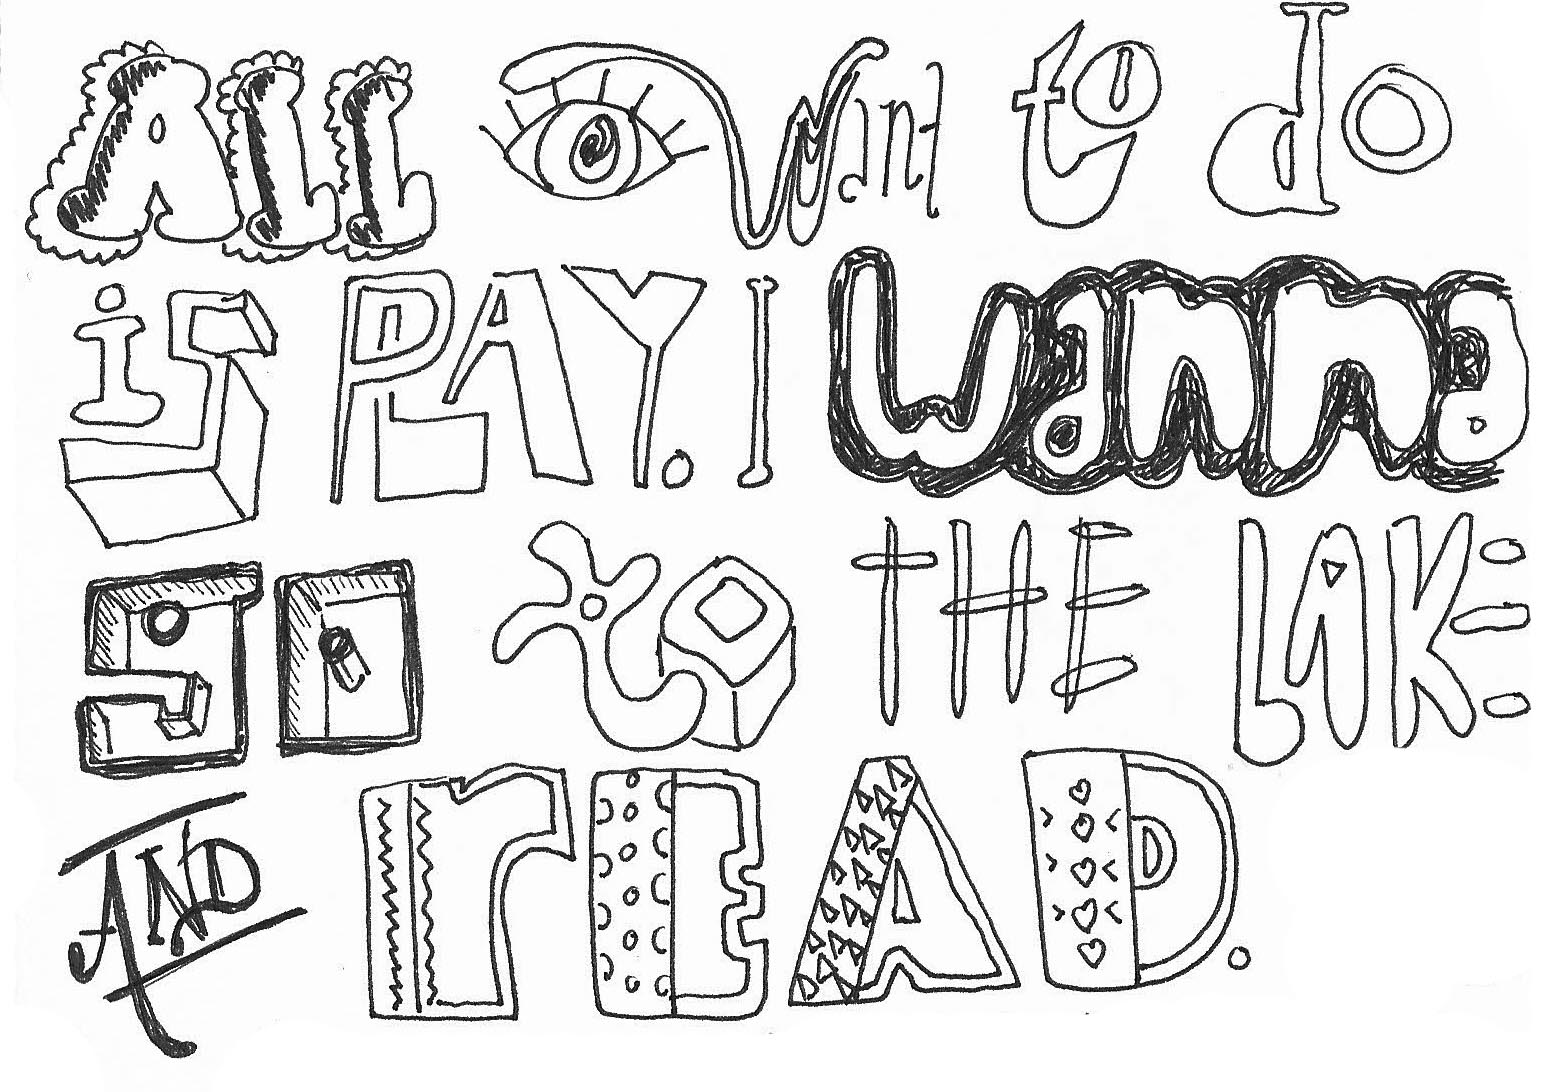 ALL 👁 want to do
is PLAY. I wanna
go to THE LAKE
AND rEAD.